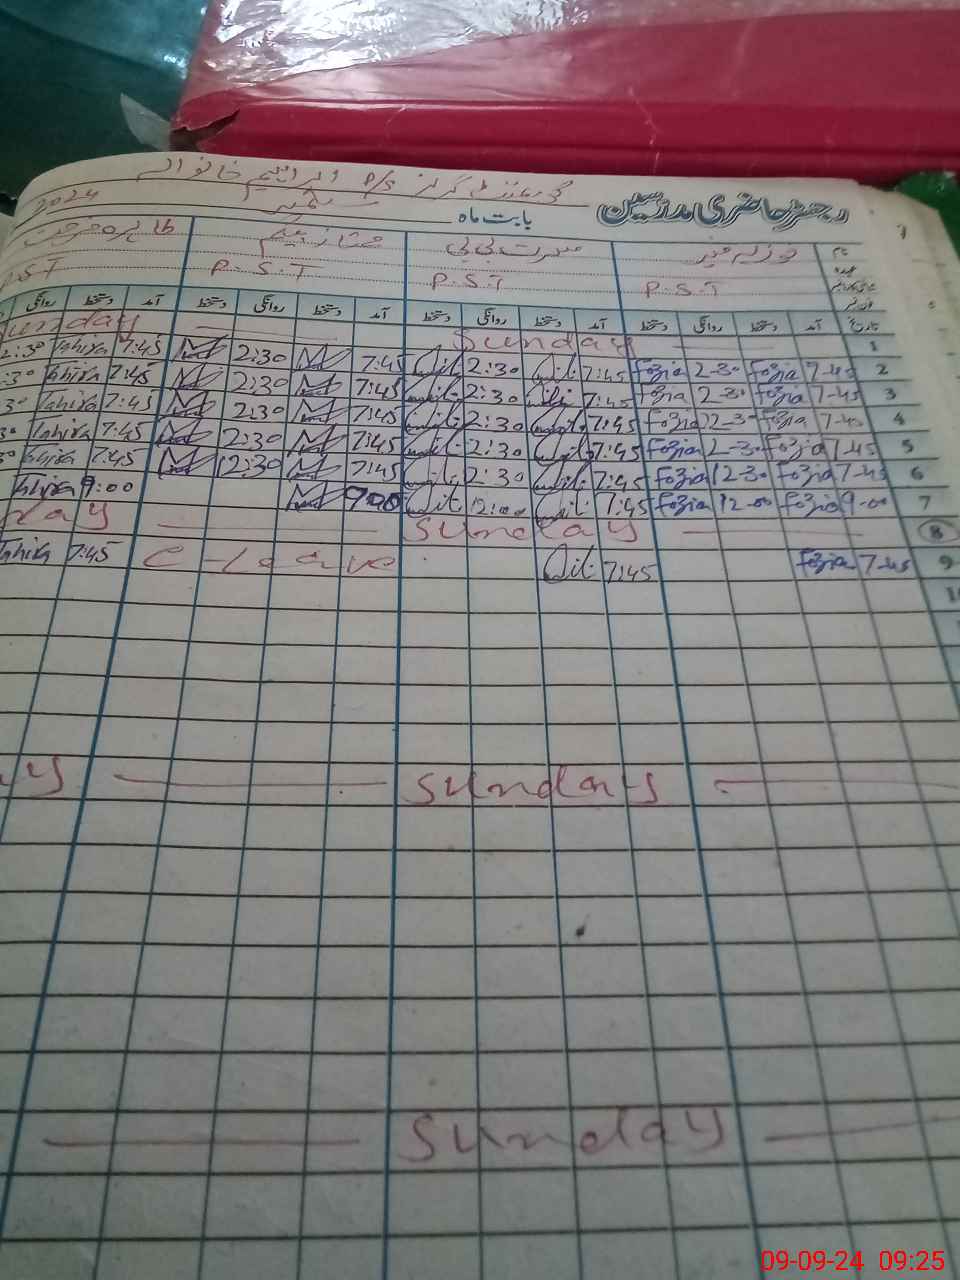 گورنمنٹ گرلز P/S ابراہیم خانوالہ
رجسٹر حاضری مدرسین بابت ماہ ستمبر 2024
نام فوزیہ منیر مسرت بی بی ممتاز بیگم طاہرہ
عہدہ P.S.T P.S.T P.S.T P.S.T
تاریخ آمد دستخط روانگی دستخط آمد دستخط روانگی دستخط آمد دستخط روانگی دستخط آمد دستخط روانگی
1 Sunday Sunday
2 7-45 Fozia 2-30 Fozia 7:45 2:30 7:45 2:30 7:45 Tahira 2:30
3 7-45 Fozia 2-30 Fozia 7:45 2:30 7:45 2:30 7:45 Tahira :30
4 7-45 Fozia 2-30 Fozia 7:45 2:30 7:45 2:30 7:45 Tahira 30
5 7-45 Fozia 2-30 Fozia 7:45 2:30 7:45 2:30 7:45 Tahira
6 7-45 Fozia 2-30 Fozia 7:45 2:30 7:45 2:30 7:45 Tahira
7 9-00 Fozia 12-00 Fozia 7:45 12:00 9:00 9:00 Tahira
8 Sunday day
9 7-45 Fozia 7:45 C-leave 7:45 Tahira
Sunday
Sunday
09-09-24 09:25